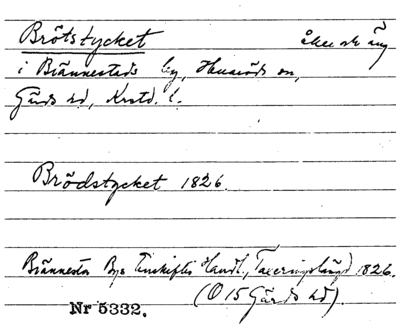 Brötstycket åker och äng
i Brännestads by, Huaröds sn,
Gärds hd, Krstd. l.
Brödstycket 1826.
Brännestad Bys Enskiftes Handl., Taxeringslängd 1826.
(O 15 Gärds hd).
Nr 5332.